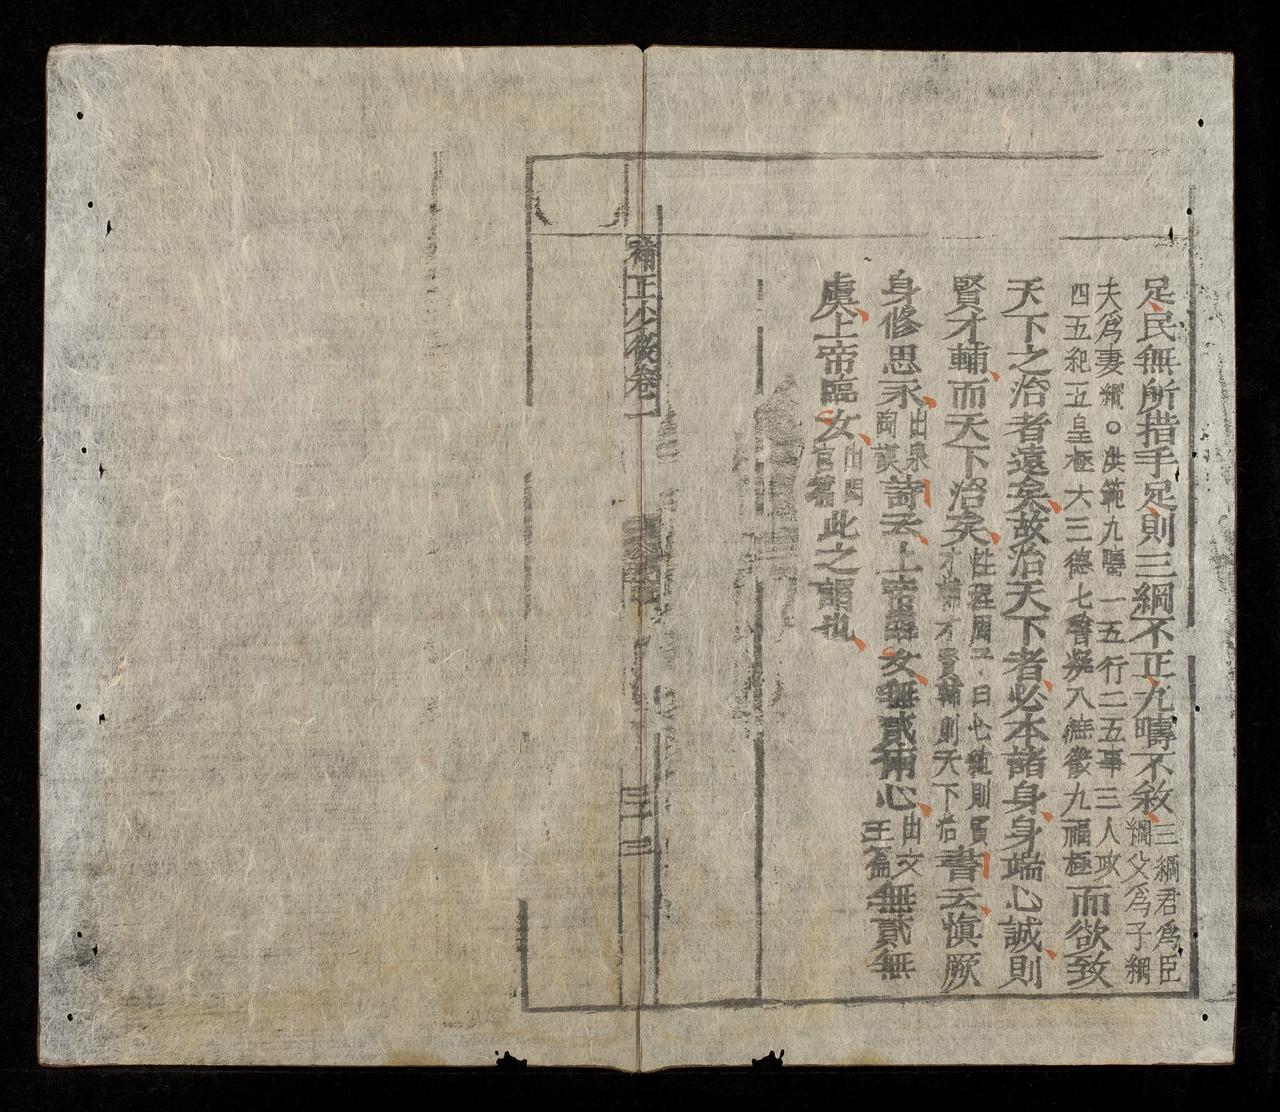 足民無所措手足則三綱不正九疇不敘三綱君爲臣綱父爲子綱
夫爲妻綱○洪範九疇一五行二五事三人政四五紀五皇極六三德七稽疑八庶徵九福極而欲致
天下之治者遠矣故治天下者必本諸身身端心誠則
賢才輔而天下治矣性理周子曰心純則賢才輔才賢輔則天下治書云愼厥
身修思永出皐陶謨詩云上帝臨女無貳爾心出文王篇無貳無
虞上帝臨女出閟宮篇此之謂也
補正少後卷一
三十三